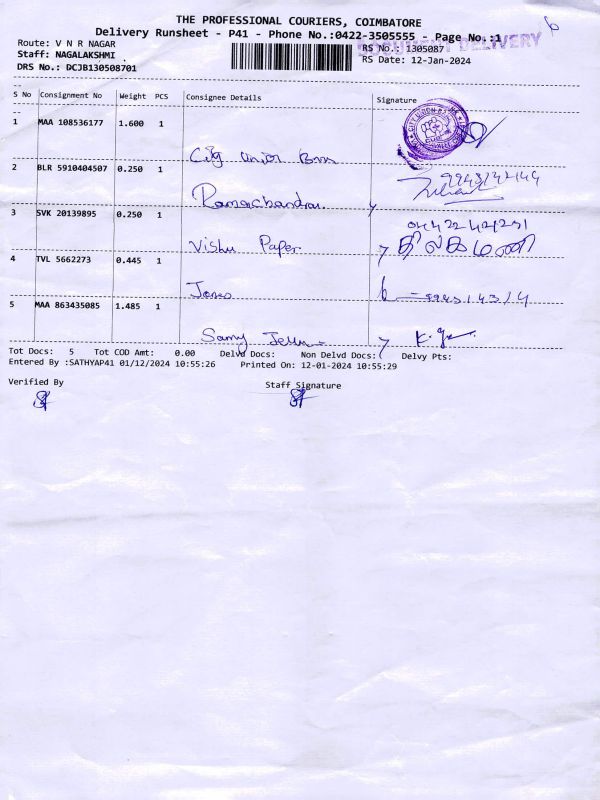 THE PROFESSIONAL COURIERS, COIMBATORE
Delivery Runsheet - P41 - Phone No.:0422-3505555 - Page No.:1
DOCUMENT DELIVERY
Route: V N R NAGAR
Staff: NAGALAKSHMI .
DRS No.: DCJB130508701
RS No.: 1305087
RS Date: 12-Jan-2024
S No Consignment No Weight PCS Consignee Details Signature
1 MAA 108536177 1.600 1
City Union
2 BLR 5910404507 0.250 1
Ramachandran
3 SVK 20139895 0.250 1
Vishu Paper
4 TVL 5662273 0.445 1
Jones
5 MAA 863435085 1.485 1
Samy
Tot Docs: 5 Tot COD Amt: 0.00 Delvd Docs: Non Delvd Docs: Delvy Pts:
Entered By :SATHYAP41 01/12/2024 10:55:26 Printed On: 12-01-2024 10:55:29
Verified By Staff Signature